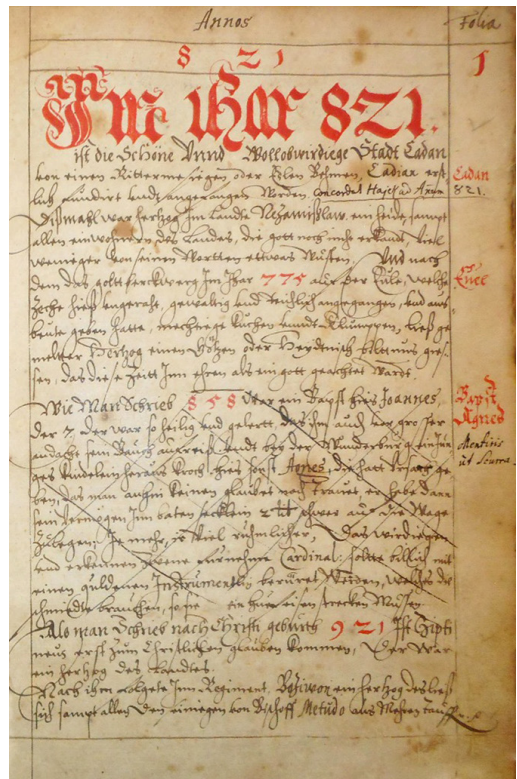 Annos
Folia
8 2 1
1
Im Ihar 821.
ist die Schöne Vnnd Wollobwirdiege Stadt Cadan
von einen Ritterme oder Edlen Behmen, Cadian erst
lich fundirt vndt angefangen Worden, Concordat Hajek ad Annum
Cadan
821.
Dißmahl war hertzog Im Lande Nezamißlaw, ein heide, sampt
allen einwohnern des Landes, die gott noch nicht erkandt, viel
weinieger von seinen Wortten ettwas Wusten. Vnd nach
dem das goltt berckwerg Im Ihar 775 auff der Eule, welche
Eule
Zeche hieß, gewaldig vnd reichlich angegangen, vnd aus
beute geben hatte, mechtege Kuchen vnndt Klumppen, ließ ge
melter Hertzog einen Götzen oder Heydnisch bildtnus gies
sen, das diese Zeitt Inn ehren als ein gott geachtet Wardt.
Wie Man Schrieb 858 War ein Bapst hies Joannes,
Bapst
Agnes
Mentius
ut Soura.
der 7 der war so heilig vnd gelertt, das Im auch von grosser
andacht sein Bauch vndt bey der ein Jun
ges Kindelein heraus kroch, hies sonst Agnes, die hatt Ursach ge
ben das man auch keinen glaubet noch trauet, er habe dann
sein Vermögen Im 2 auff die Wage
Zulegen, Je mehr, so viel rühmlicher, Das wirdiegen
vnd erkennen Cardinal: soltte billich mit
einen guldenen Instrumentlein berüret Werden, welches die
schmiedte brauchen, so sie ein hueffeisen strecken Müssen
Also man Schrieb nach Christi geburth 921 Ist
neus erst zum Christlichen glauben kommen, Der War
ein hertzog des Landes.
Nach ihm volgete Inn Regiment, Boziwon ein hertzog der ließ
sich sampt allen den einiegen von Bischoff Metudo aus Mehren tauffen